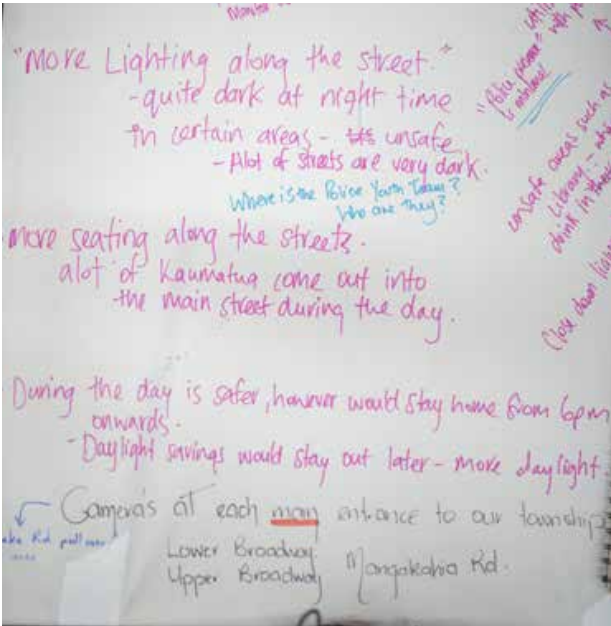 "More Lighting along the street."
-quite dark at night time
in certain areas - unsafe
- Alot of streets are very dark.
Where is the Police Youth Team?
Who are They?
More seating along the streets.
alot of Kaumatua come out into
the main street during the day.
During the day is safer, however would stay home from 6pm
onwards.
- Daylight savings would stay out later - more daylight
Camera's at each main entrance to our township
Lower Broadway.
Upper Broadway Mangakahia Rd.
Rd
"Police presence with
is minimal"
unsafe areas such as
Library -
drink in
Close down